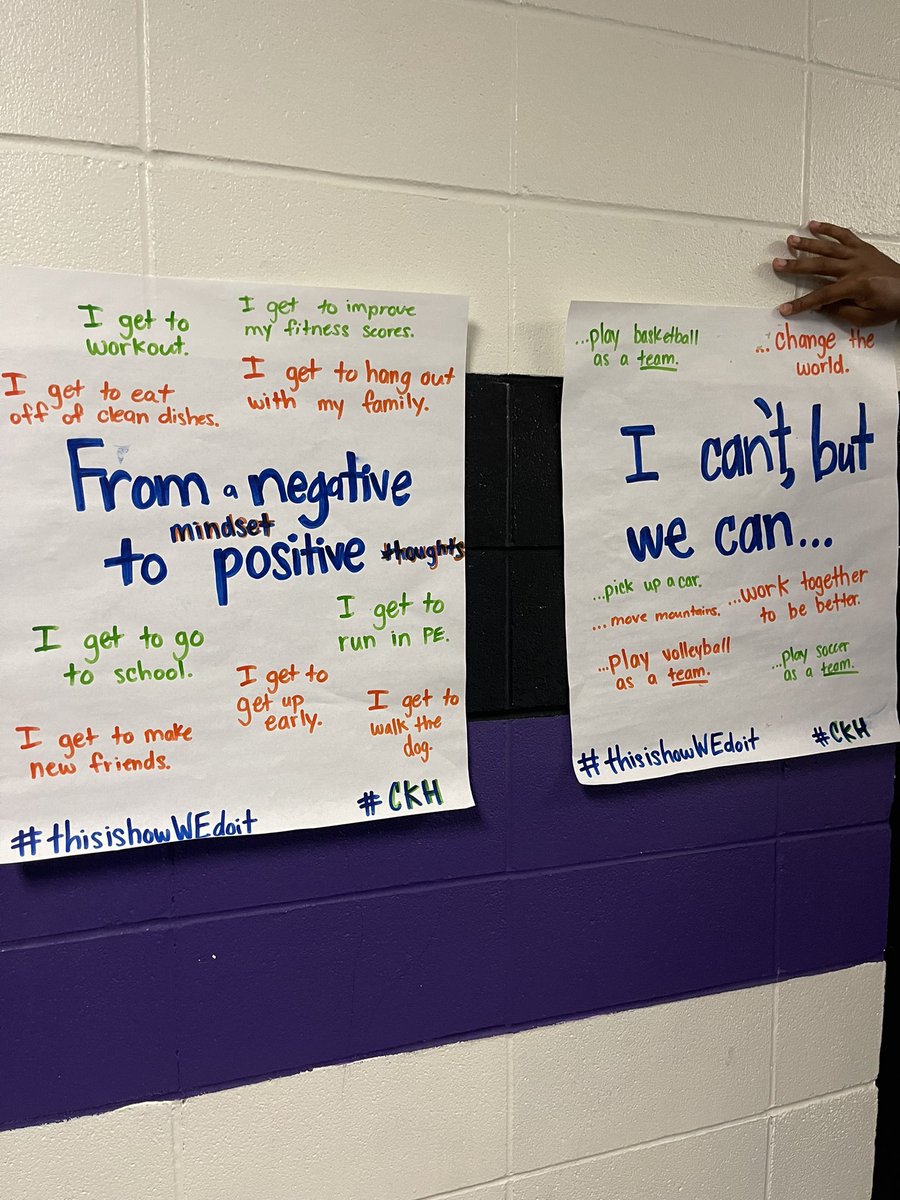 I get to
workout.
I get to improve
my fitness scores.
I get to eat
off of clean dishes.
I get to hang out
with my family.
From a negative
mindset
to positive thoughts
I get to go
to school.
I get to
run in PE.
I get to
get up
early.
I get to
walk the
dog.
I get to make
new friends.
#thisishowWEdoit
#CKH
...play basketball
as a team.
...change the
world.
I can't, but
we can...
...pick up a car.
...move mountains.
...work together
to be better.
...play volleyball
as a team.
...play soccer
as a team.
#thisishowWEdoit
#CKH